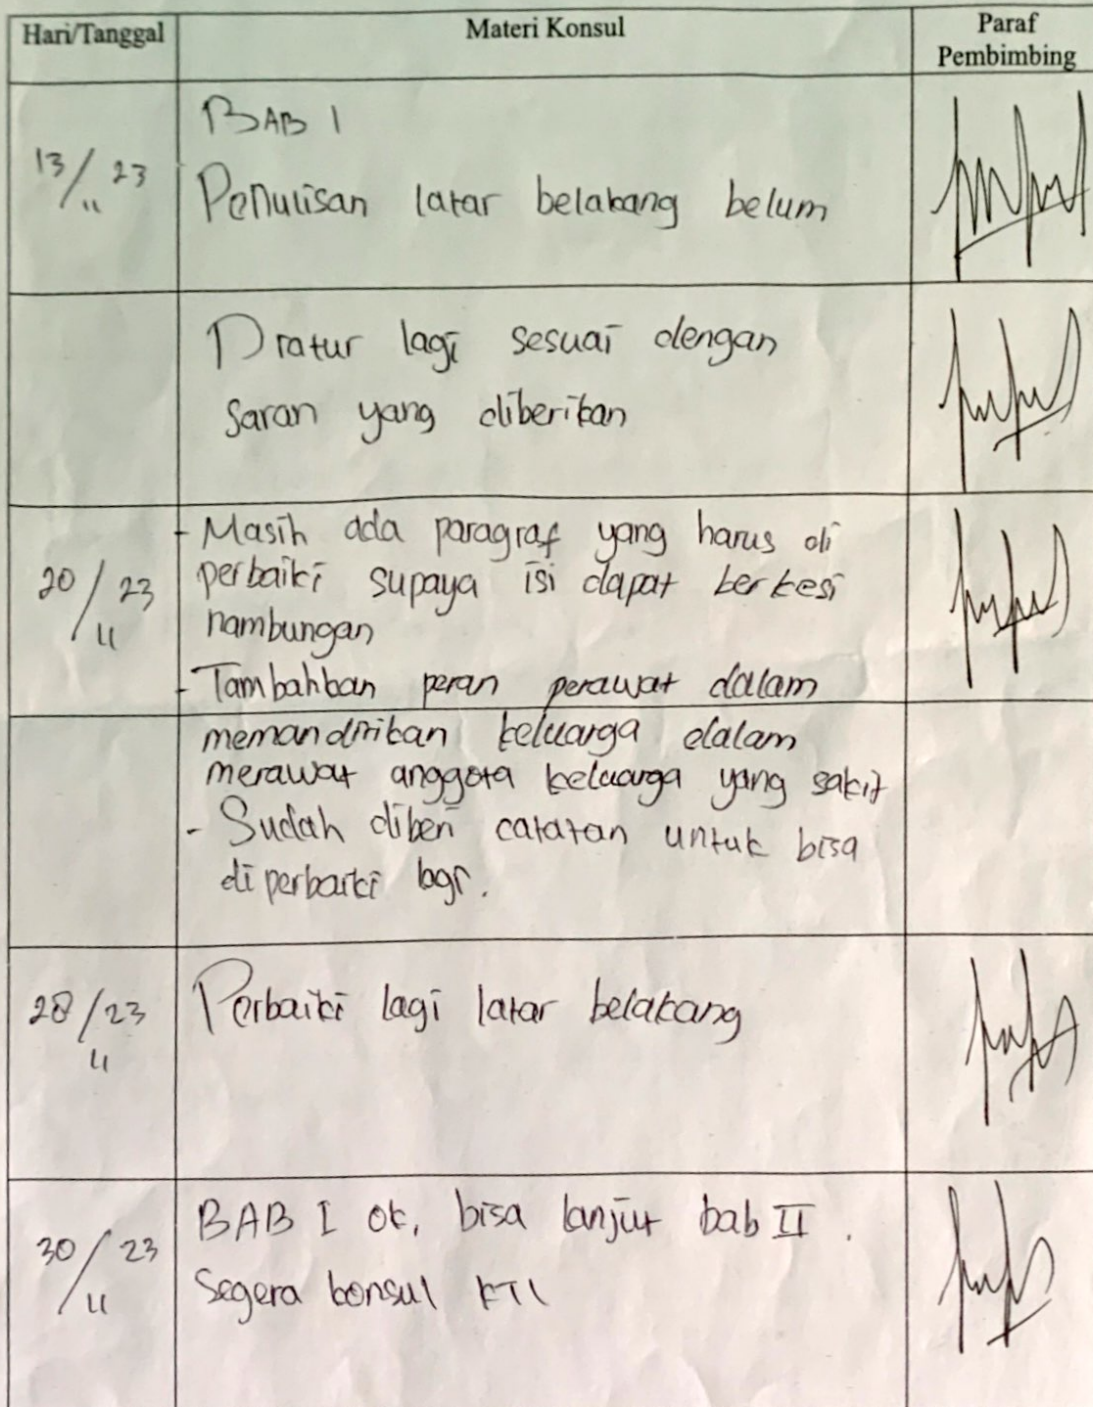 Hari/Tanggal Materi Konsul Paraf Pembimbing
BAB 1
13/11 23 Penulisan latar belakang belum
Diatur lagi sesuai dengan
saran yang diberikan
- Masih ada paragraf yang harus di
20/11 23 perbaiki supaya isi dapat berkesi
nambungan
- Tambahkan peran perawat dalam
memandirikan keluarga dalam
merawat anggota keluarga yang sakit
- Sudah diberi catatan untuk bisa
diperbaiki lagi.
28/11 23 Perbaiki lagi latar belakang
BAB I ok, bisa lanjut bab II.
30/11 23 Segera konsul KTI